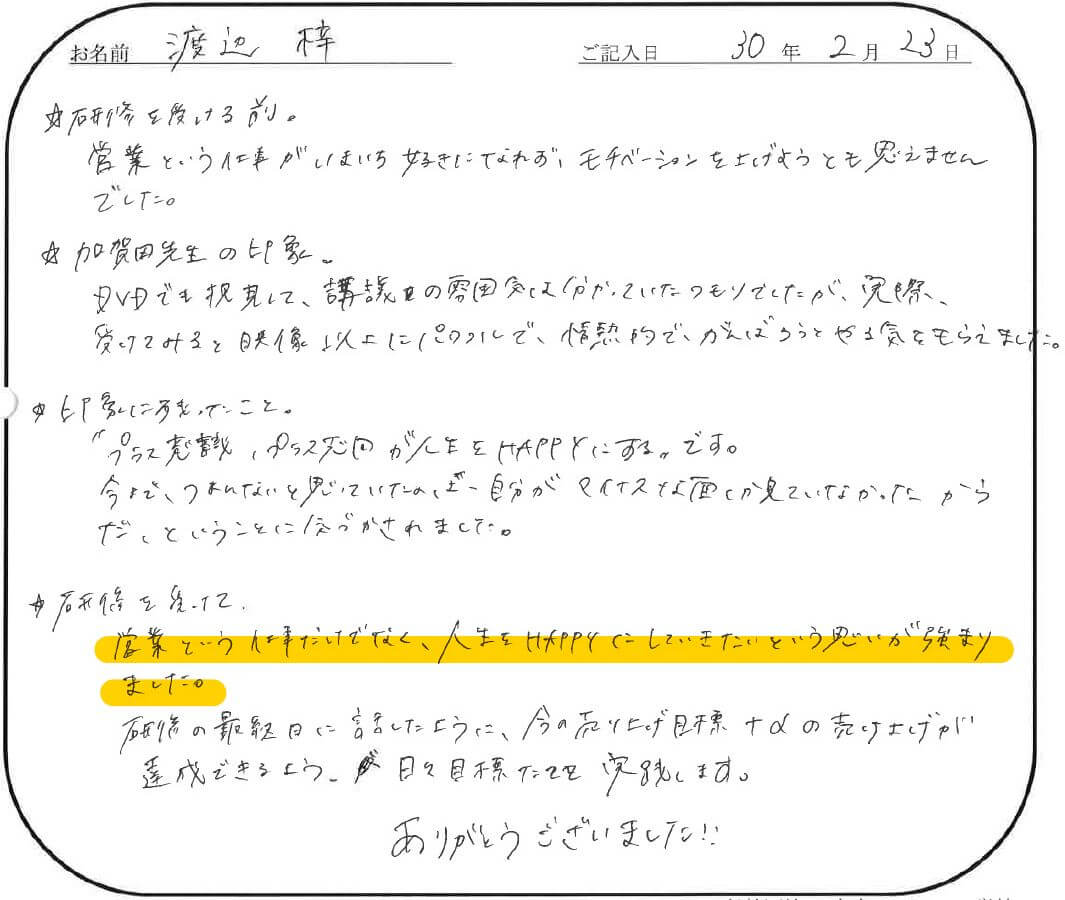 お名前 渡辺 梓 ご記入日 30年2月23日
☆研修を受ける前。
営業という仕事がいまいち好きになれず、モチベーションを上げようとも思えません
でした。
☆加賀田先生の印象。
DVDでも拝見して、講義の雰囲気は分かっていたつもりでしたが、実際、
受けてみると映像以上にパワフルで、情熱的で、がんばろうとやる気をもらえました。
☆印象に残ったこと。
"プラス意識、プラス思回が人生をHAPPYにする"です。
今まで、つまんないと思っていたのは、自分がマイナスな面しか見ていなかったから
だ、ということに気づかされました。
☆研修を受けて。
営業という仕事だけでなく、人生をHAPPYにしていきたいという思いが強まり
ました。
研修の最終日に話したように、今の売り上げ目標+αの売り上げが
達成できるよう、日々目標たてを実践します。
ありがとうございました!!